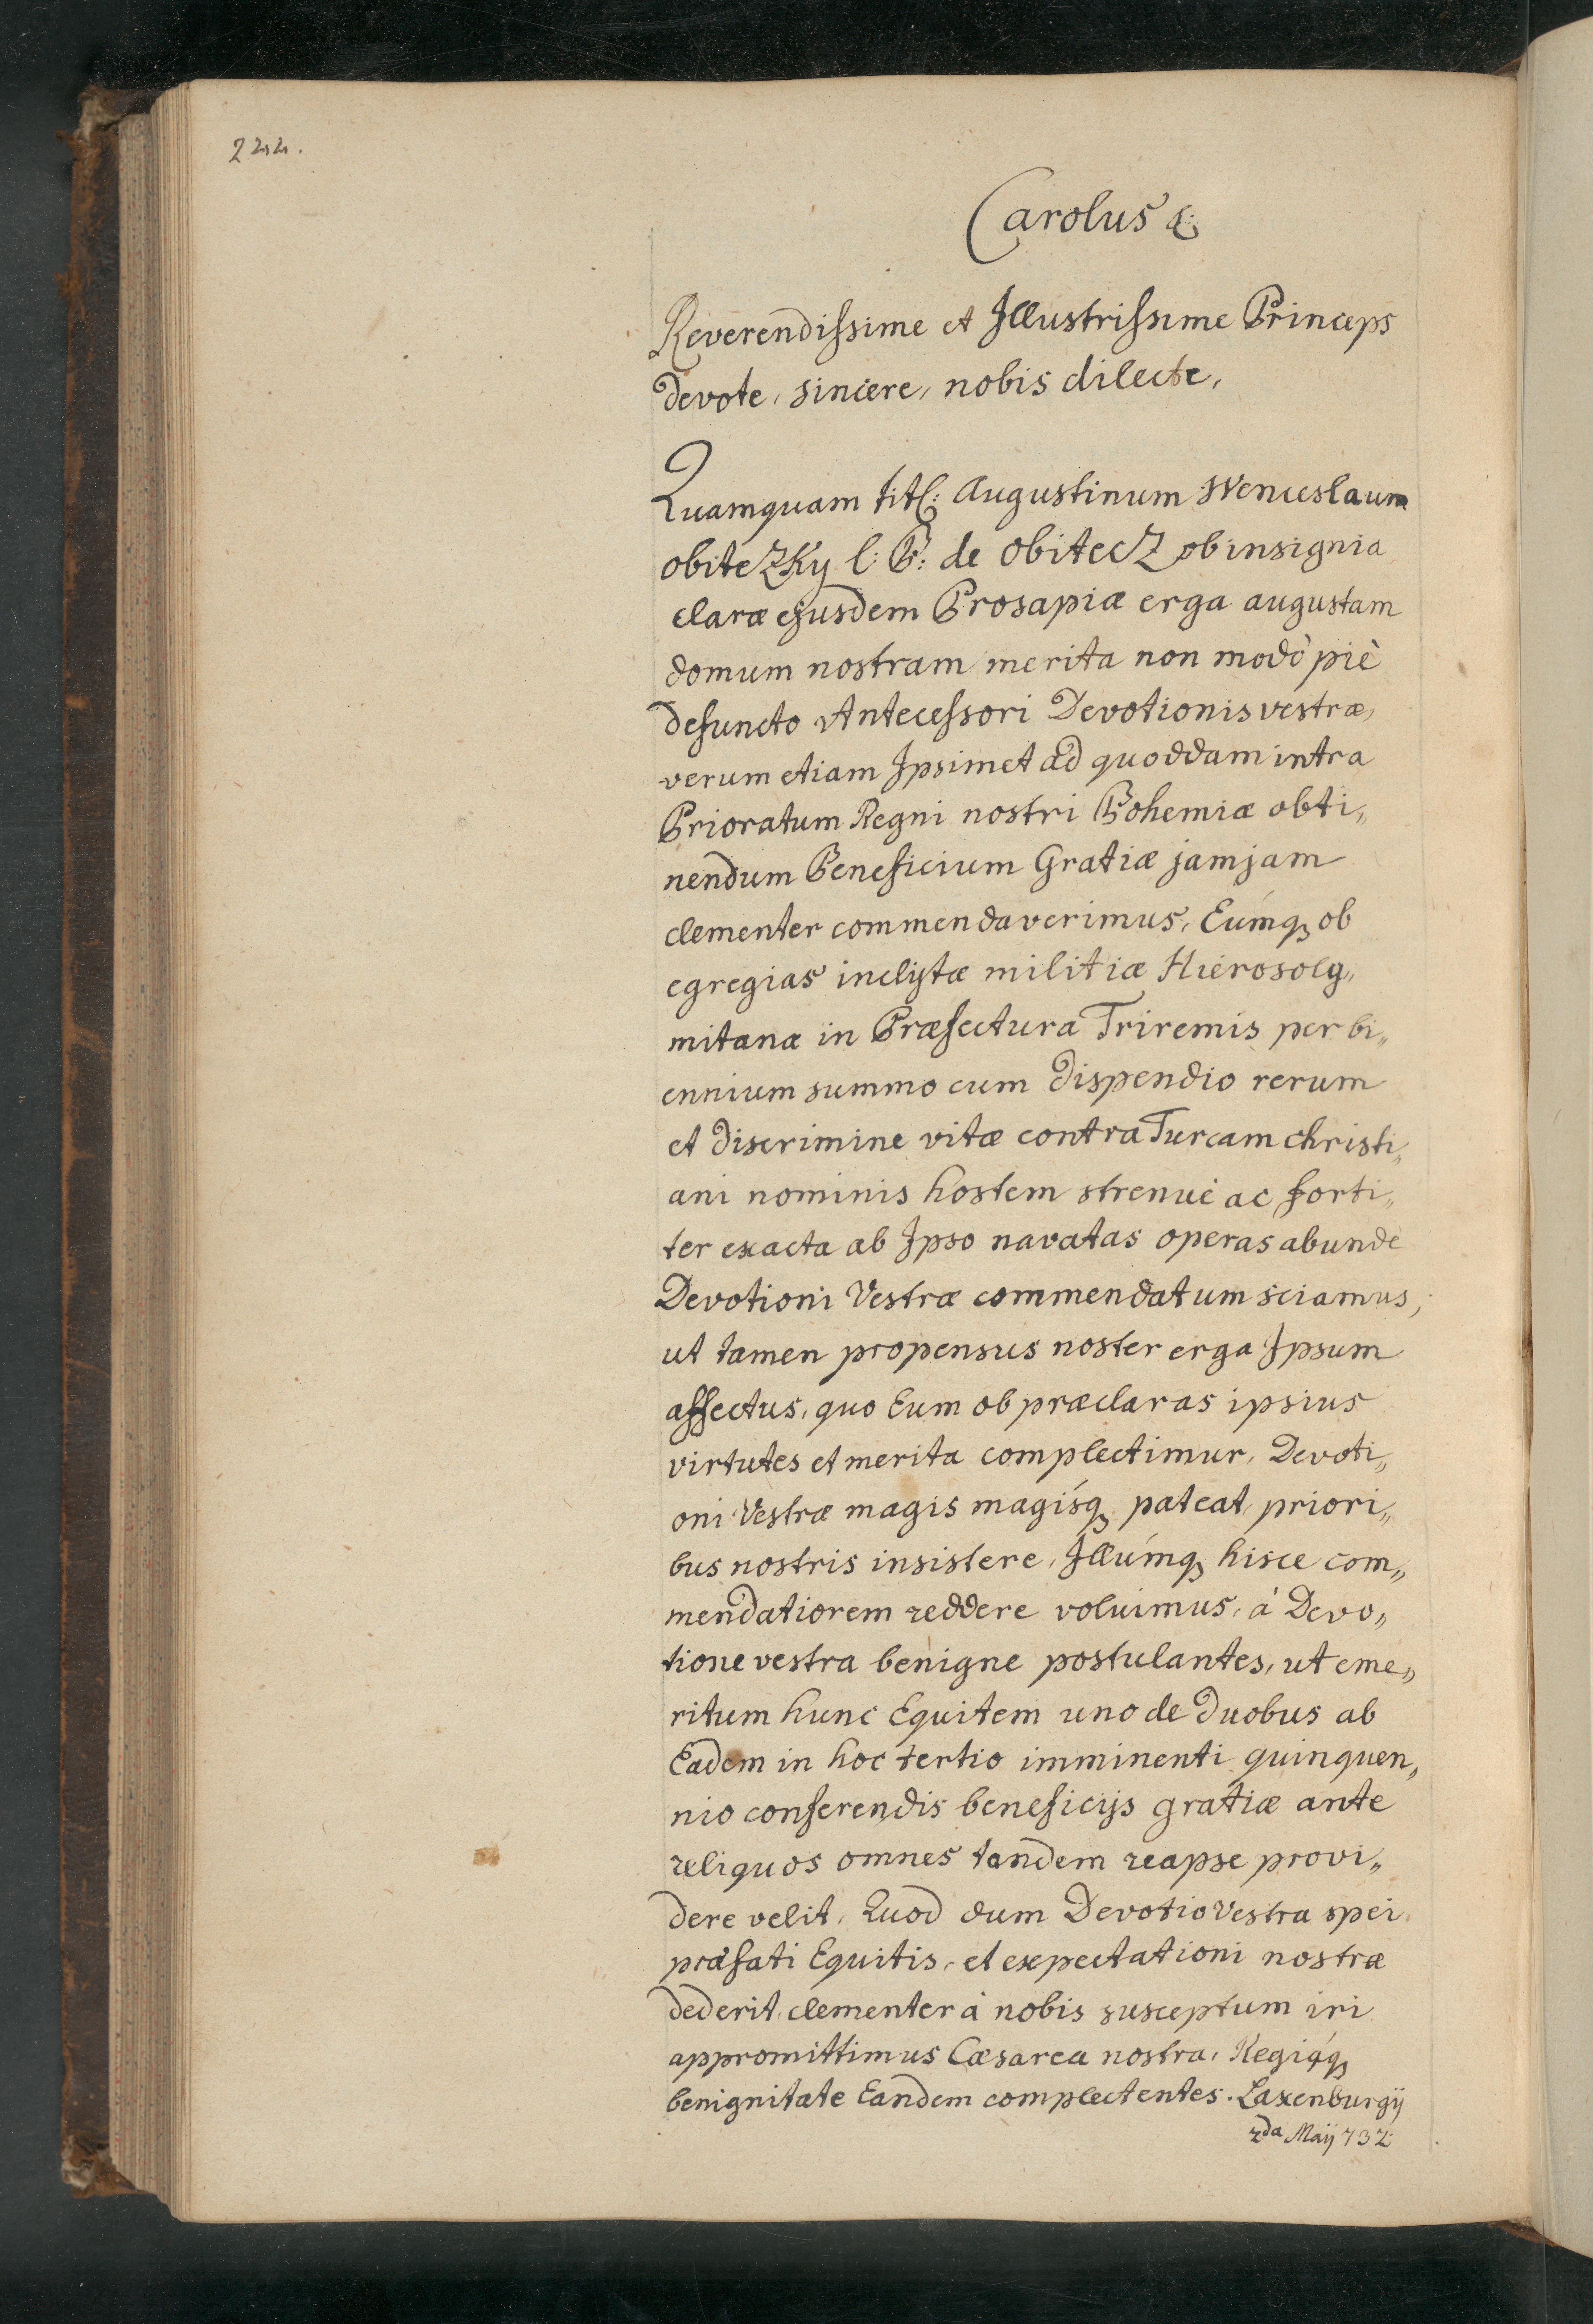 222.
Carolus &c
Reverendissime et Illustrissime Princeps
devote, sincere, nobis dilecte,
Quamquam titl: Augustinum Wenceslaum
obiteZKy l: B: de obitecZ ob insignia
claræ ejusdem Prosapiæ erga augustam
domum nostram merita non modò piè
defuncto Antecessori Devotionis vestræ,
verum etiam Ipsimet ad quoddam intra
Prioratum Regni nostri Bohemiæ obti„
nendum Beneficium Gratiæ jamjam
clementer commendaverimus, Eúmq₃ ob
egregias inclytæ militiæ Hierosoly„
mitanæ in Præfectura Triremis per bi„
ennium summo cum dispendio rerum
et discrimine vitæ contra Turcam christi„
ani nominis hostem strenuè ac forti„
ter exacta ab Ipso navatas operas abundè
Devotioni Vestræ commendatum sciamus,
ut tamen propensus noster erga Ipsum
affectus, quo Eum ob præclaras ipsius
virtutes et merita complectimur, Devoti„
oni Vestræ magis magísq₃ pateat, priori„
bus nostris insistere, Illúmq₃ hisce com„
mendatiorem reddere voluimus, à Devo„
tione vestra benigne postulantes, ut eme„
ritum hunc Equitem uno de duobus ab
Eadem in hoc tertio imminenti quinquen„
nio conferendis beneficijs gratiæ ante
reliquos omnes tandem reapse provi„
dere velit, Quod dum Devotio Vestra spei
præfati Equitis, et expectationi nostræ
dederit, clementer à nobis susceptum iri
appromittimus Cæsarea nostra, Regiáq₃
benignitate Eandem complectentes. Laxenburgij
2da Maij 732